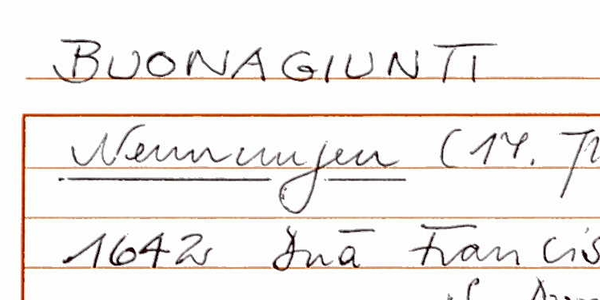 BUONAGIUNTI
Nenningen (14.
1642 Dnā Francis